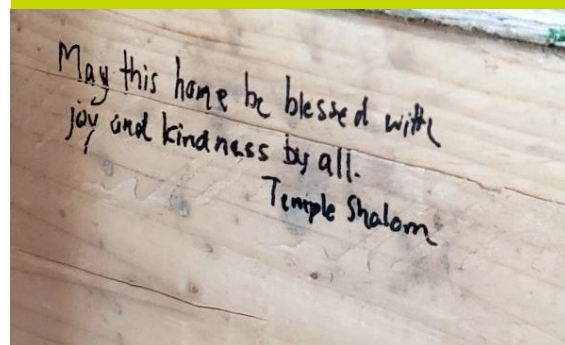 May this home be blessed with
joy and kindness by all.
Temple Shalom